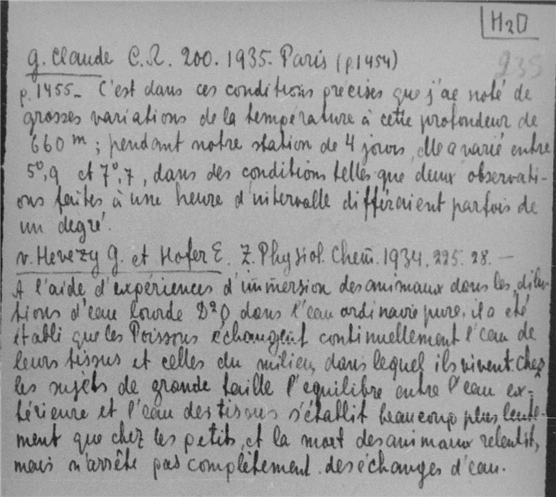 H2O
235
G. Claude C.R. 200. 1935. Paris (p1454)
p.1455_ C'est dans ces conditions précises que j'ai noté de
grosses variations de la température à cette profondeur de
660 m; pendant notre station de 4 jours, elle a varié entre
5°,9 et 7°,7, dans des conditions telles que deux observati-
ons faites à une heure d'intervalle différaient parfois de
un degré.
v. Hevezy G. et Hofer E. Z. Physiol. Chem. 1934. 225. 28. —
A l'aide d'expériences d'immersion des animaux dans les dilu-
tions d'eau lourde D²O dans l'eau ordinaire pure, il a été
établi que les Poissons échangent continuellement l'eau de
leurs tissus et celles du milieu dans lequel ils vivent. Chez
les sujets de grande taille l'equilibre entre l'eau ex-
térieure et l'eau des tissus s'établit beaucoup plus lente-
ment que chez les petits, et la mort des animaux ralentit,
mais n'arrête pas complètement des échanges d'eau.